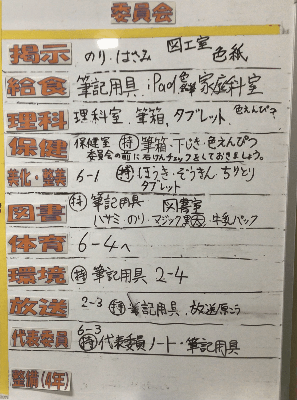 委員会
掲示 のり、はさみ 図工室 色紙
給食 筆記用具、iPad 家庭科室
理科 理科室、筆箱、タブレット 色えんぴつ
保健 保健室 持 筆箱・下じき・色えんぴつ
委員会の前に石けんチェックをしておきましょう。
美化・整美 6-1 持 ほうき・ぞうきん・ちりとり
タブレット
図書 持 筆記用具 図書室
ハサミ・のり・マジック 牛乳パック
体育 6-4へ
環境 持 筆記用具 2-4
放送 2-3 持 筆記用具、放送原こう
代表委員 6-3
持 代表委員ノート・筆記用具
整備(4年)